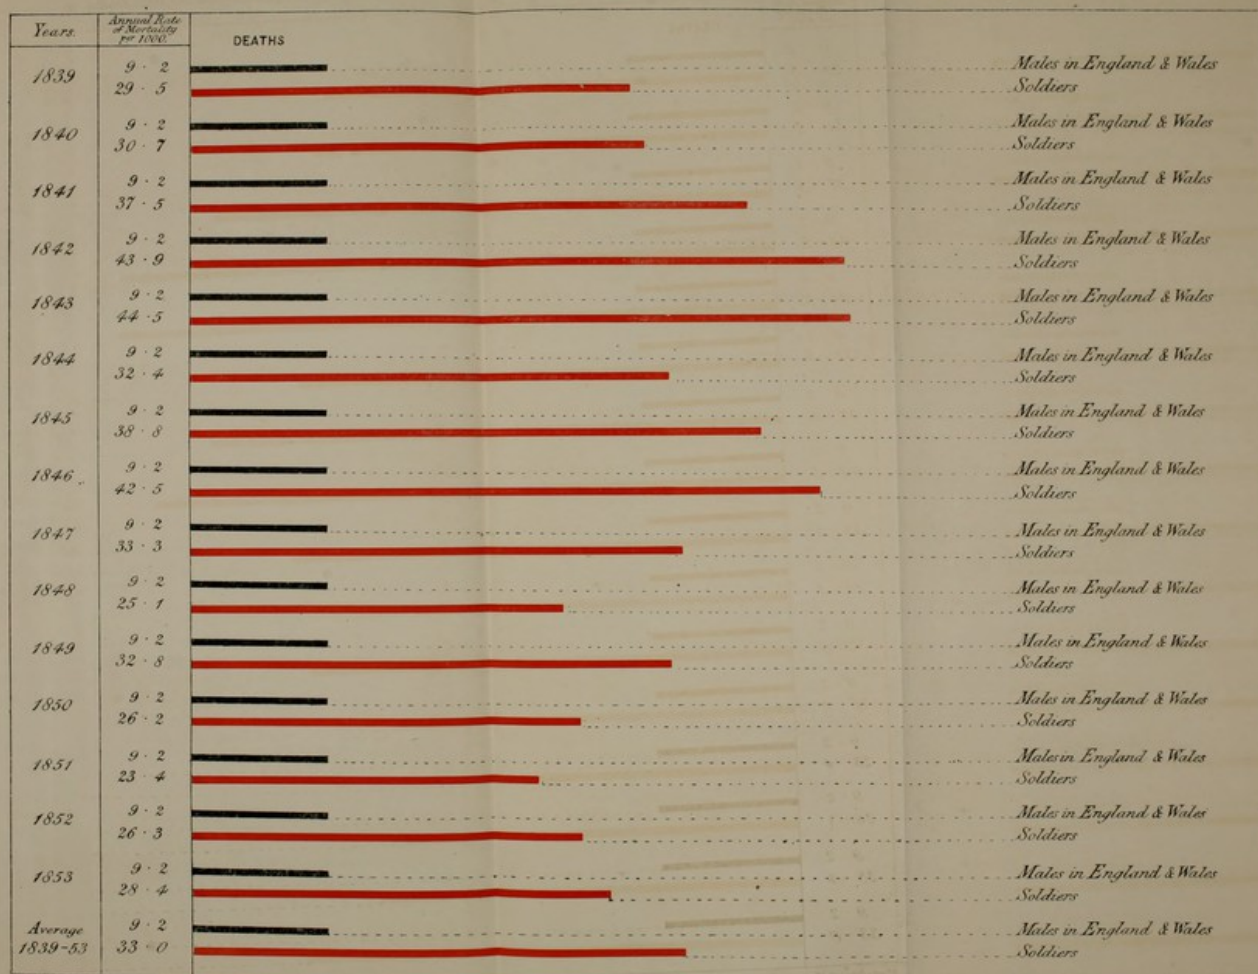 Years. Annual Rate of Mortality per 1000. DEATHS
1839 9 · 2 Males in England & Wales
29 · 5 Soldiers
1840 9 · 2 Males in England & Wales
30 · 7 Soldiers
1841 9 · 2 Males in England & Wales
37 · 5 Soldiers
1842 9 · 2 Males in England & Wales
43 · 9 Soldiers
1843 9 · 2 Males in England & Wales
44 · 5 Soldiers
1844 9 · 2 Males in England & Wales
32 · 4 Soldiers
1845 9 · 2 Males in England & Wales
38 · 8 Soldiers
1846 9 · 2 Males in England & Wales
42 · 5 Soldiers
1847 9 · 2 Males in England & Wales
33 · 3 Soldiers
1848 9 · 2 Males in England & Wales
25 · 1 Soldiers
1849 9 · 2 Males in England & Wales
32 · 8 Soldiers
1850 9 · 2 Males in England & Wales
26 · 2 Soldiers
1851 9 · 2 Males in England & Wales
23 · 4 Soldiers
1852 9 · 2 Males in England & Wales
26 · 3 Soldiers
1853 9 · 2 Males in England & Wales
28 · 4 Soldiers
Average 9 · 2 Males in England & Wales
1839-53 33 · 0 Soldiers